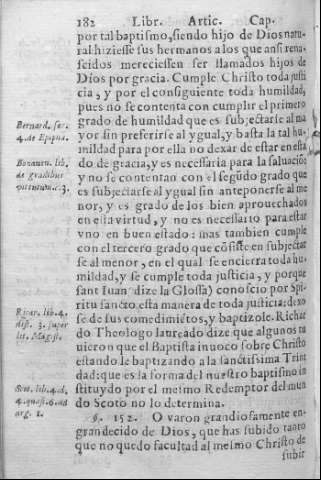 182 Libr. Artic. Cap.
por tal baptismo, siendo hijo de Dios natu-
ral hiziesse sus hermanos a los que ansi rena-
scidos mereciessen ser llamados hijos de
Dios por gracia. Cumple Christo toda justi
cia, y por el consiguiente toda humildad,
pues no se contenta con cumplir el primero
grado de humildad que es subjectarse al ma
yor sin preferirse al ygual, y basta la tal hu-
mildad para por ella no dexar de estar en esta
do de gracia, y es necessaria para la saluació:
y no se contentan con el segúdo grado que
es subjectarse al ygual sin anteponerse al me
nor, y es grado de los bien aprouechados
en essa virtud, y no es necessario para estar
vno en buen estado: mas tambien cumple
con el tercero grado que cósiste en subjectar
se al menor, en el qual se encierra toda hu-
mildad, y se cumple toda justicia, y porque
sant Iuan (dize la Glossa) conoscio por Spi-
ritu sancto esta manera de toda justicia: dexo
se de sus comedimiétos, y baptizole. Richar
do Theologo laureado dize que algunos tu
uieron que el Baptista inuoco sobre Christo
estando le baptizando a la sanctissima Trini
dad: que es la forma del nuestro baptismo in
stituydo por el mesmo Redemptor del mun
do Scoto no lo determina.
§. 152. O varon grandiosamente en-
grandecido de Dios, que has subido tanto
que no quedo facultad al mesmo Christo de
subir
Bernard. ser.
4. de Epipha.
Bonauen. lib.
de gradibus
virtutum. c. 3.
Ricar. lib. 4.
dist. 3. super
lit. Magist.
Scot. lib. 4. d.
4. quæst. 6. ad
arg. 1.